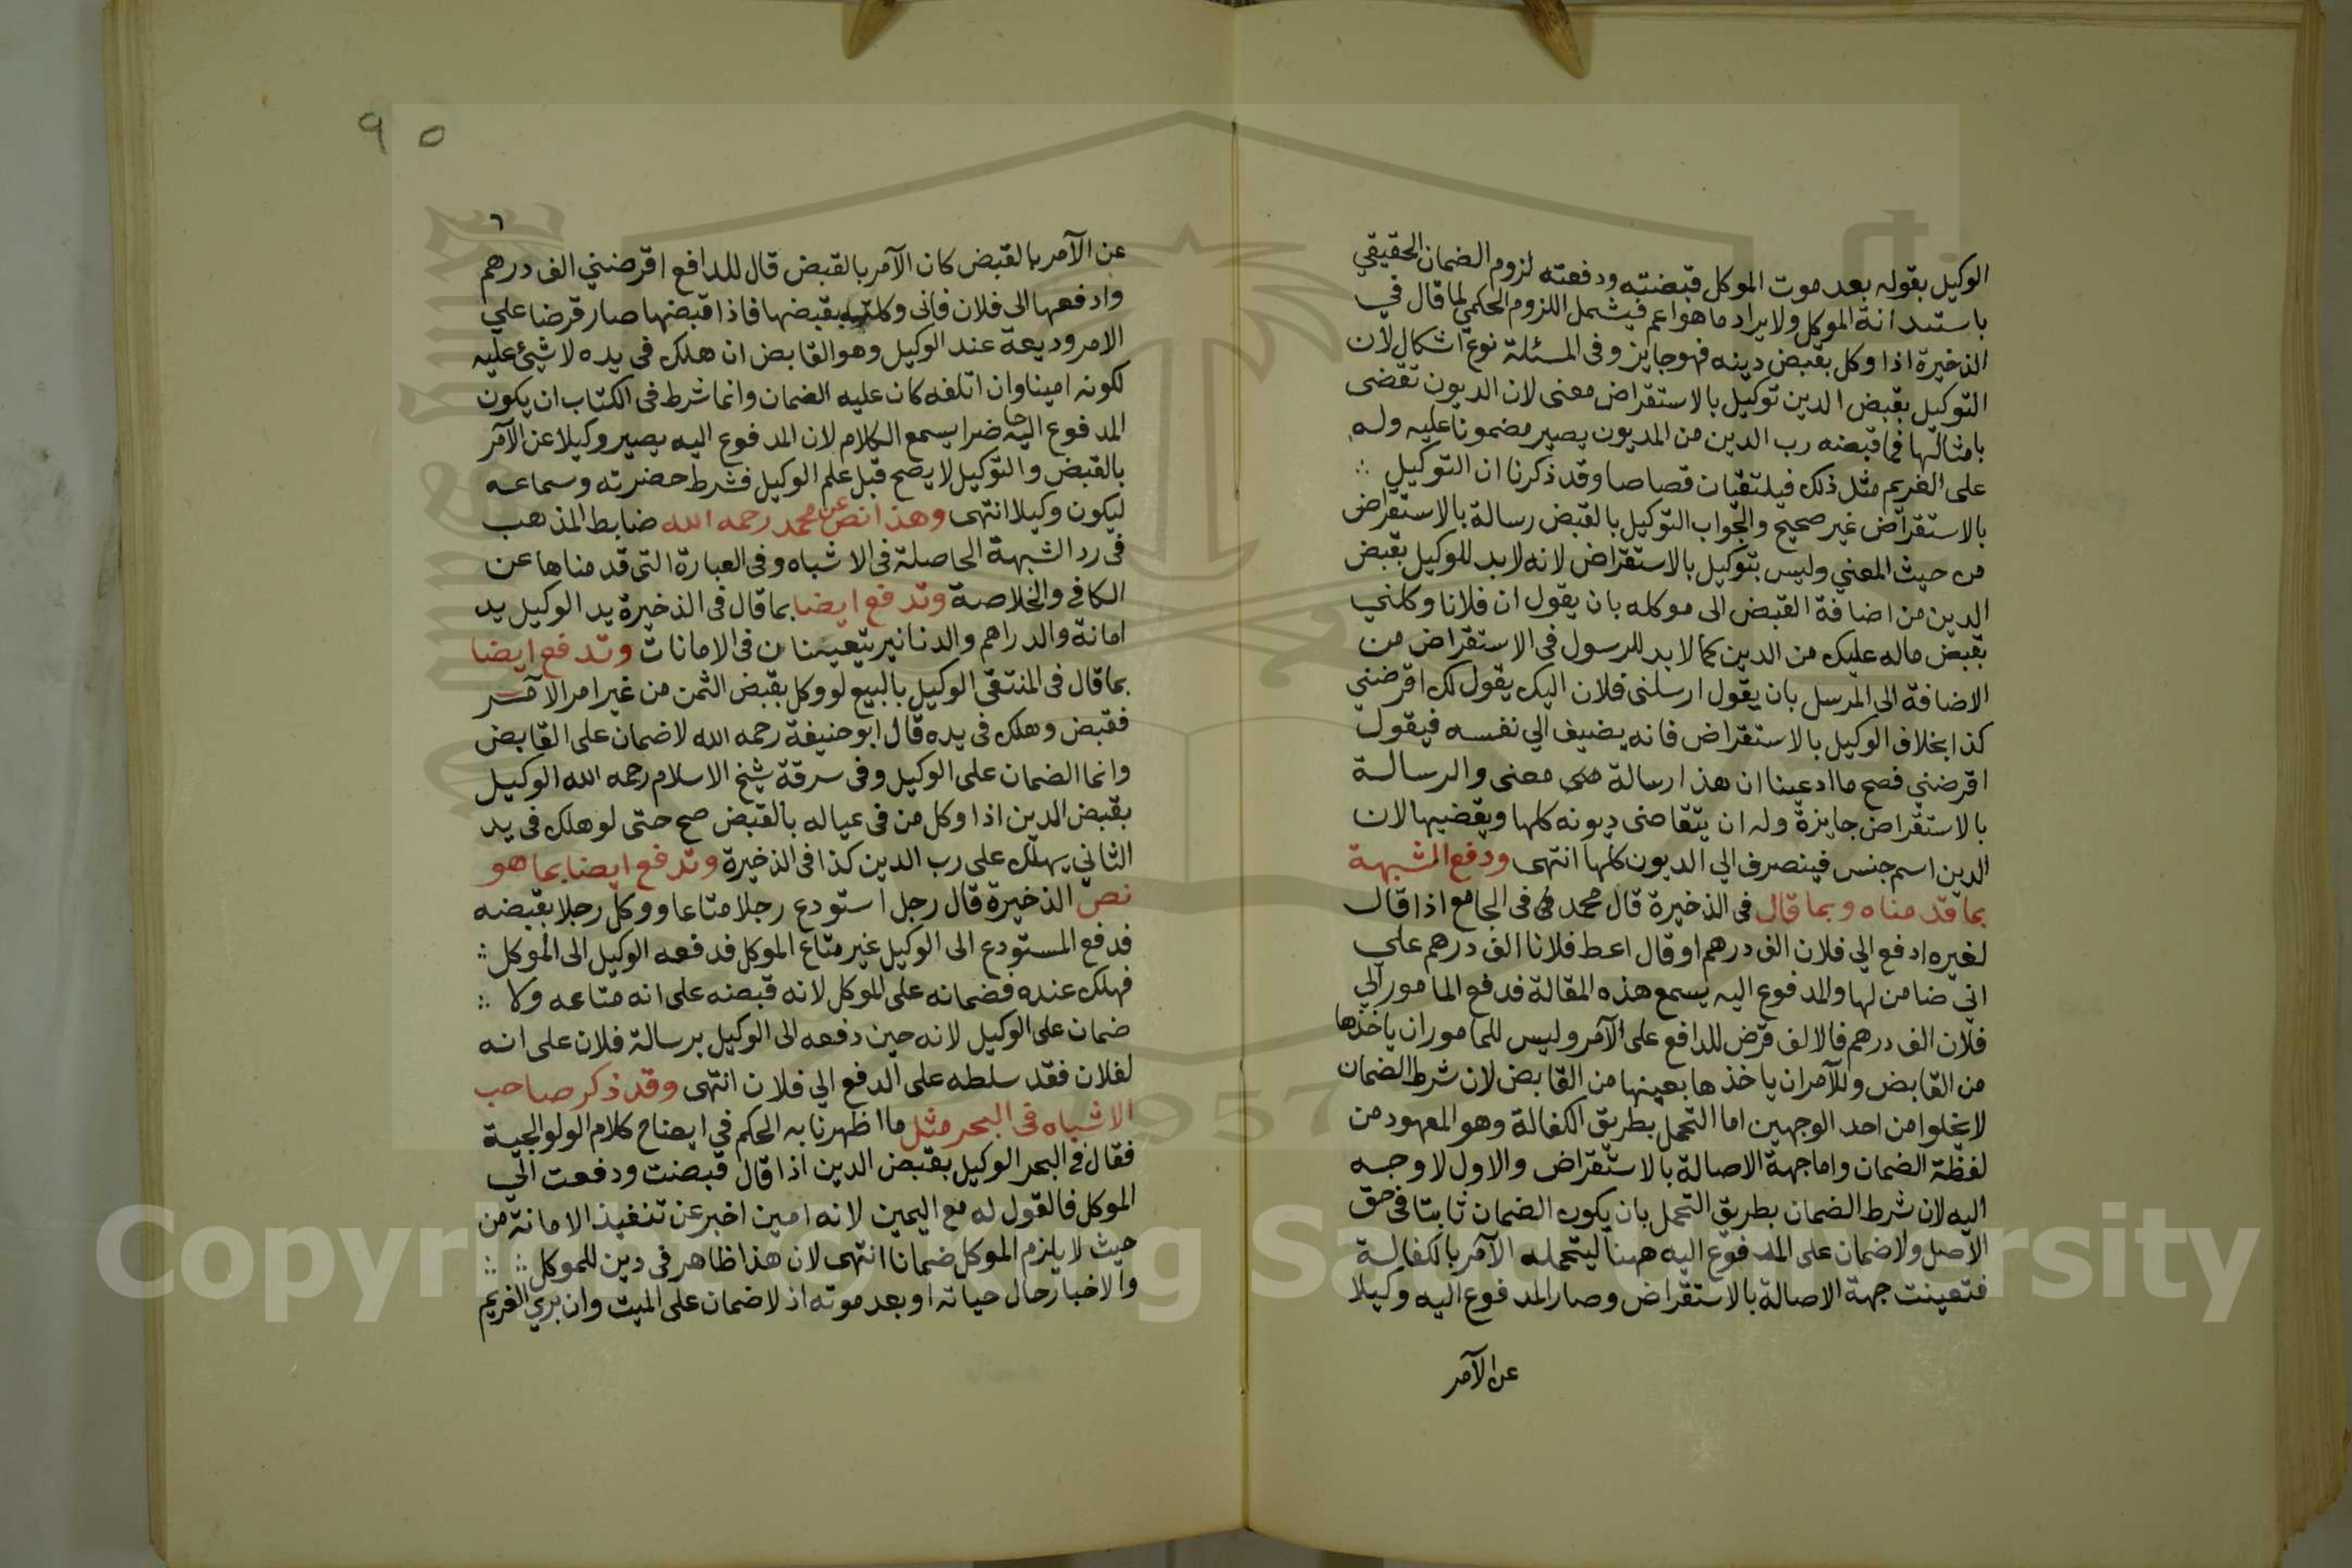 الوكيل بقوله بعد موت الموكل قبضته ودفعته لزوم الضمان الحقيقي
باستدانة الموكل ولا يراد ما هو اعم فيشمل اللزوم الحكمي لما قال في
الذخيرة اذا وكل بقبض دينه فهو جايز وفى المسئلة نوع اشكال لان
التوكيل بقبض الدين توكيل بالاستقراض معنى لان الديون تقضى
بامثالها فما قبضه رب الدين من المديون يصير مضمونا عليه وله
على الغريم مثل ذلك فيلتقيان قصاصا وقد ذكرنا ان التوكيل ∴
بالاستقراض غير صحيح والجواب التوكيل بالقبض رسالة بالاستقراض
من حيث المعني وليس بتوكيل بالاستقراض لانه لابد للوكيل بقبض
الدين من اضافة القبض الى موكله بان يقول ان فلانا وكلني
بقبض ماله عليك من الدين كما لابد للرسول فى الاستقراض من
الاضافة الى المرسل بان يقول ارسلنى فلان اليك يقول لك اقرضني
كذا بخلاف الوكيل بالاستقراض فانه يضيف الي نفسه فيقول
اقرضني فصح ما ادعينا ان هذا رسالة معنى والرسالة
بالاستقراض جايزة وله ان يتقاضى ديونه كلها ويقضيها لان
الدين اسم جنس فينصرف الي الديون كلها انتهى ودفع الشبهة
بما قدمناه وبما قال فى الذخيرة قال محمد فى الجامع اذا قال
لغيره ادفع الي فلان الف درهم او قال اعط فلانا الف درهم علي
اني ضامن لها والمدفوع اليه يسمع هذه المقالة فدفع المامور الي
فلان الف درهم فالالف قرض للدافع على الآمر وليس للمامور ان ياخذها
من القابض وللآمر ان ياخذها بعينها من القابض لان شرط الضمان
لا يخلوا من احد الوجهين اما التحمل بطريق الكفالة وهو المعهود من
لفظة الضمان واما جهة الاصالة بالاستقراض والاول لا وجه
اليه لان شرط الضمان بطريق التحمل بان يكون الضمان ثابتا فى حق
الاصل ولا ضمان على المدفوع اليه ههنا ليتحمله الآمر بالكفالة
فتعينت جهة الاصالة بالاستقراض وصار المدفوع اليه وكيلا
عن الآمر
٩٥
٦
عن الآمر بالقبض كان الآمر بالقبض قال للدافع اقرضني الف درهم
وادفعها الى فلان فانى وكلته بقبضها فاذا قبضها صار قرضا علي
الامر وديعة عند الوكيل وهو القابض ان هلك فى يده لا شيئ عليه
لكونه امينا وان اتلفه كان عليه الضمان وانما شرط فى الكتاب ان يكون
المدفوع اليه حاضرا يسمع الكلام لان المدفوع اليه يصير وكيلا عن الآمر
بالقبض والتوكيل لا يصح قبل علم الوكيل فشرط حضرته وسماعه
ليكون وكيلا انتهى وهذا نص عن محمد رحمه الله ضابط المذهب
فى رد الشبهة الحاصلة فى الاشباه وفى العبارة التى قدمناها عن
الكافي والخلاصة وتدفع ايضا بما قال فى الذخيرة يد الوكيل يد
امانة والدراهم والدنانير يتعينان فى الامانات وتدفع ايضا
بما قال فى المنتقى الوكيل بالبيع لو وكل بقبض الثمن من غير امر الآمر
فقبض وهلك فى يده قال ابو حنيفة رحمه الله لا ضمان على القابض
وانما الضمان على الوكيل وفى سرقة شيخ الاسلام رحمه الله الوكيل
بقبض الدين اذا وكل من فى عياله بالقبض صح حتى لو هلك فى يد
الثاني يهلك على رب الدين كذا فى الذخيرة وتدفع ايضا بما هو
نص الذخيرة قال رجل استودع رجلا متاعا ووكل رجلا بقبضه
فدفع المستودع الى الوكيل غير متاع الموكل فدفعه الوكيل الى الموكل ∴
فهلك عنده فضمانه على الموكل لانه قبضه على انه متاعه ولا ∴
ضمان على الوكيل لانه حين دفعه الى الوكيل برسالة فلان على انه
لفلان فقد سلطه على الدفع الي فلان انتهى وقد ذكر صاحب
الاشباه فى البحر مثل ما اظهرنا به الحكم في ايضاح كلام الولوالجية
فقال فى البحر الوكيل بقبض الدين اذا قال قبضت ودفعت الي
الموكل فالقول له مع اليمين لانه امين اخبر عن تنفيذ الامانة من
حيث لا يلزم الموكل ضمانا انتهى لان هذا ظاهر فى دين للموكل ∴ ∴
والاخبار حال حياته او بعد موته اذ لا ضمان على الميت وان بري الغريم
1957
Copyright © King Saud University